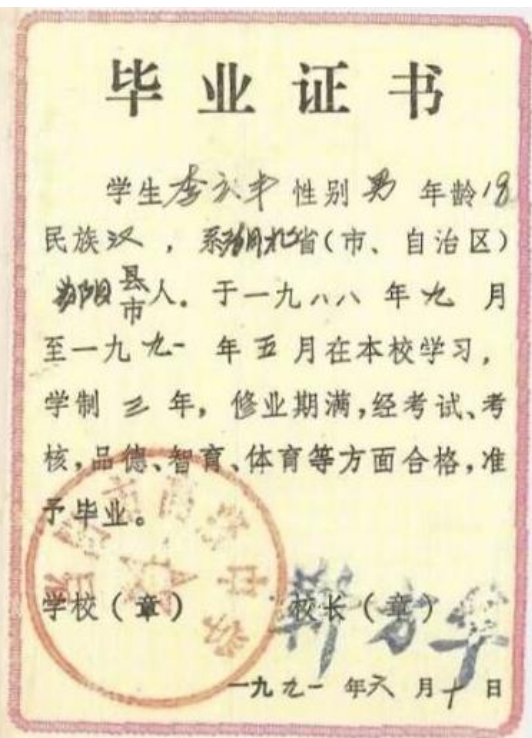 毕业证书
学生李 性别男 年龄18
民族汉，系湖北省（市、自治区）
县市人。于一九八八年九月
至一九九一年五月在本校学习，
学制三年，修业期满，经考试、考
核，品德、智育、体育等方面合格，准
予毕业。
学校（章） 校长（章）
一九九一年六月十日